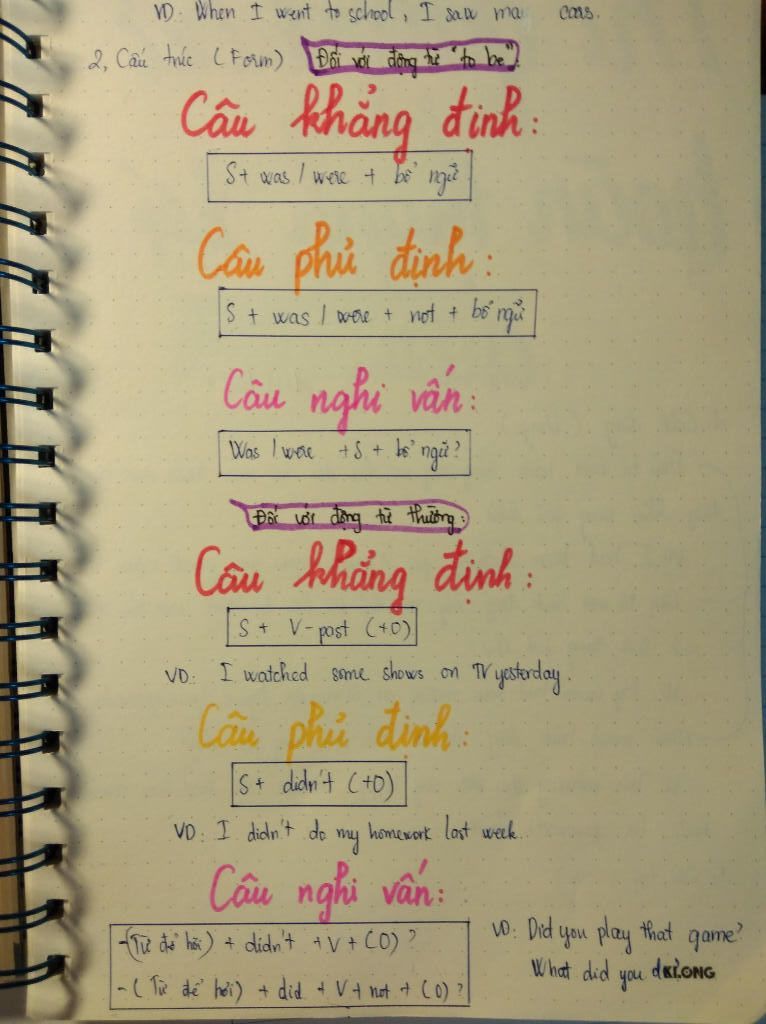 VD: When I went to school, I saw ma cars.
2, Cấu trúc (Form) Đối với động từ "to be".
Câu khẳng định:
S + was / were + bổ ngữ
Câu phủ định:
S + was / were + not + bổ ngữ
Câu nghi vấn:
Was / were + S + bổ ngữ?
Đối với động từ thường:
Câu khẳng định:
S + V-past (+O)
VD: I watched some shows on TV yesterday.
Câu phủ định:
S + didn't (+O)
VD: I didn't do my homework last week.
Câu nghi vấn:
-(Từ để hỏi) + didn't + V + (O) ?
VD: Did you play that game?
-( Từ để hỏi) + did + V + not + (O) ?
What did you
KLONG